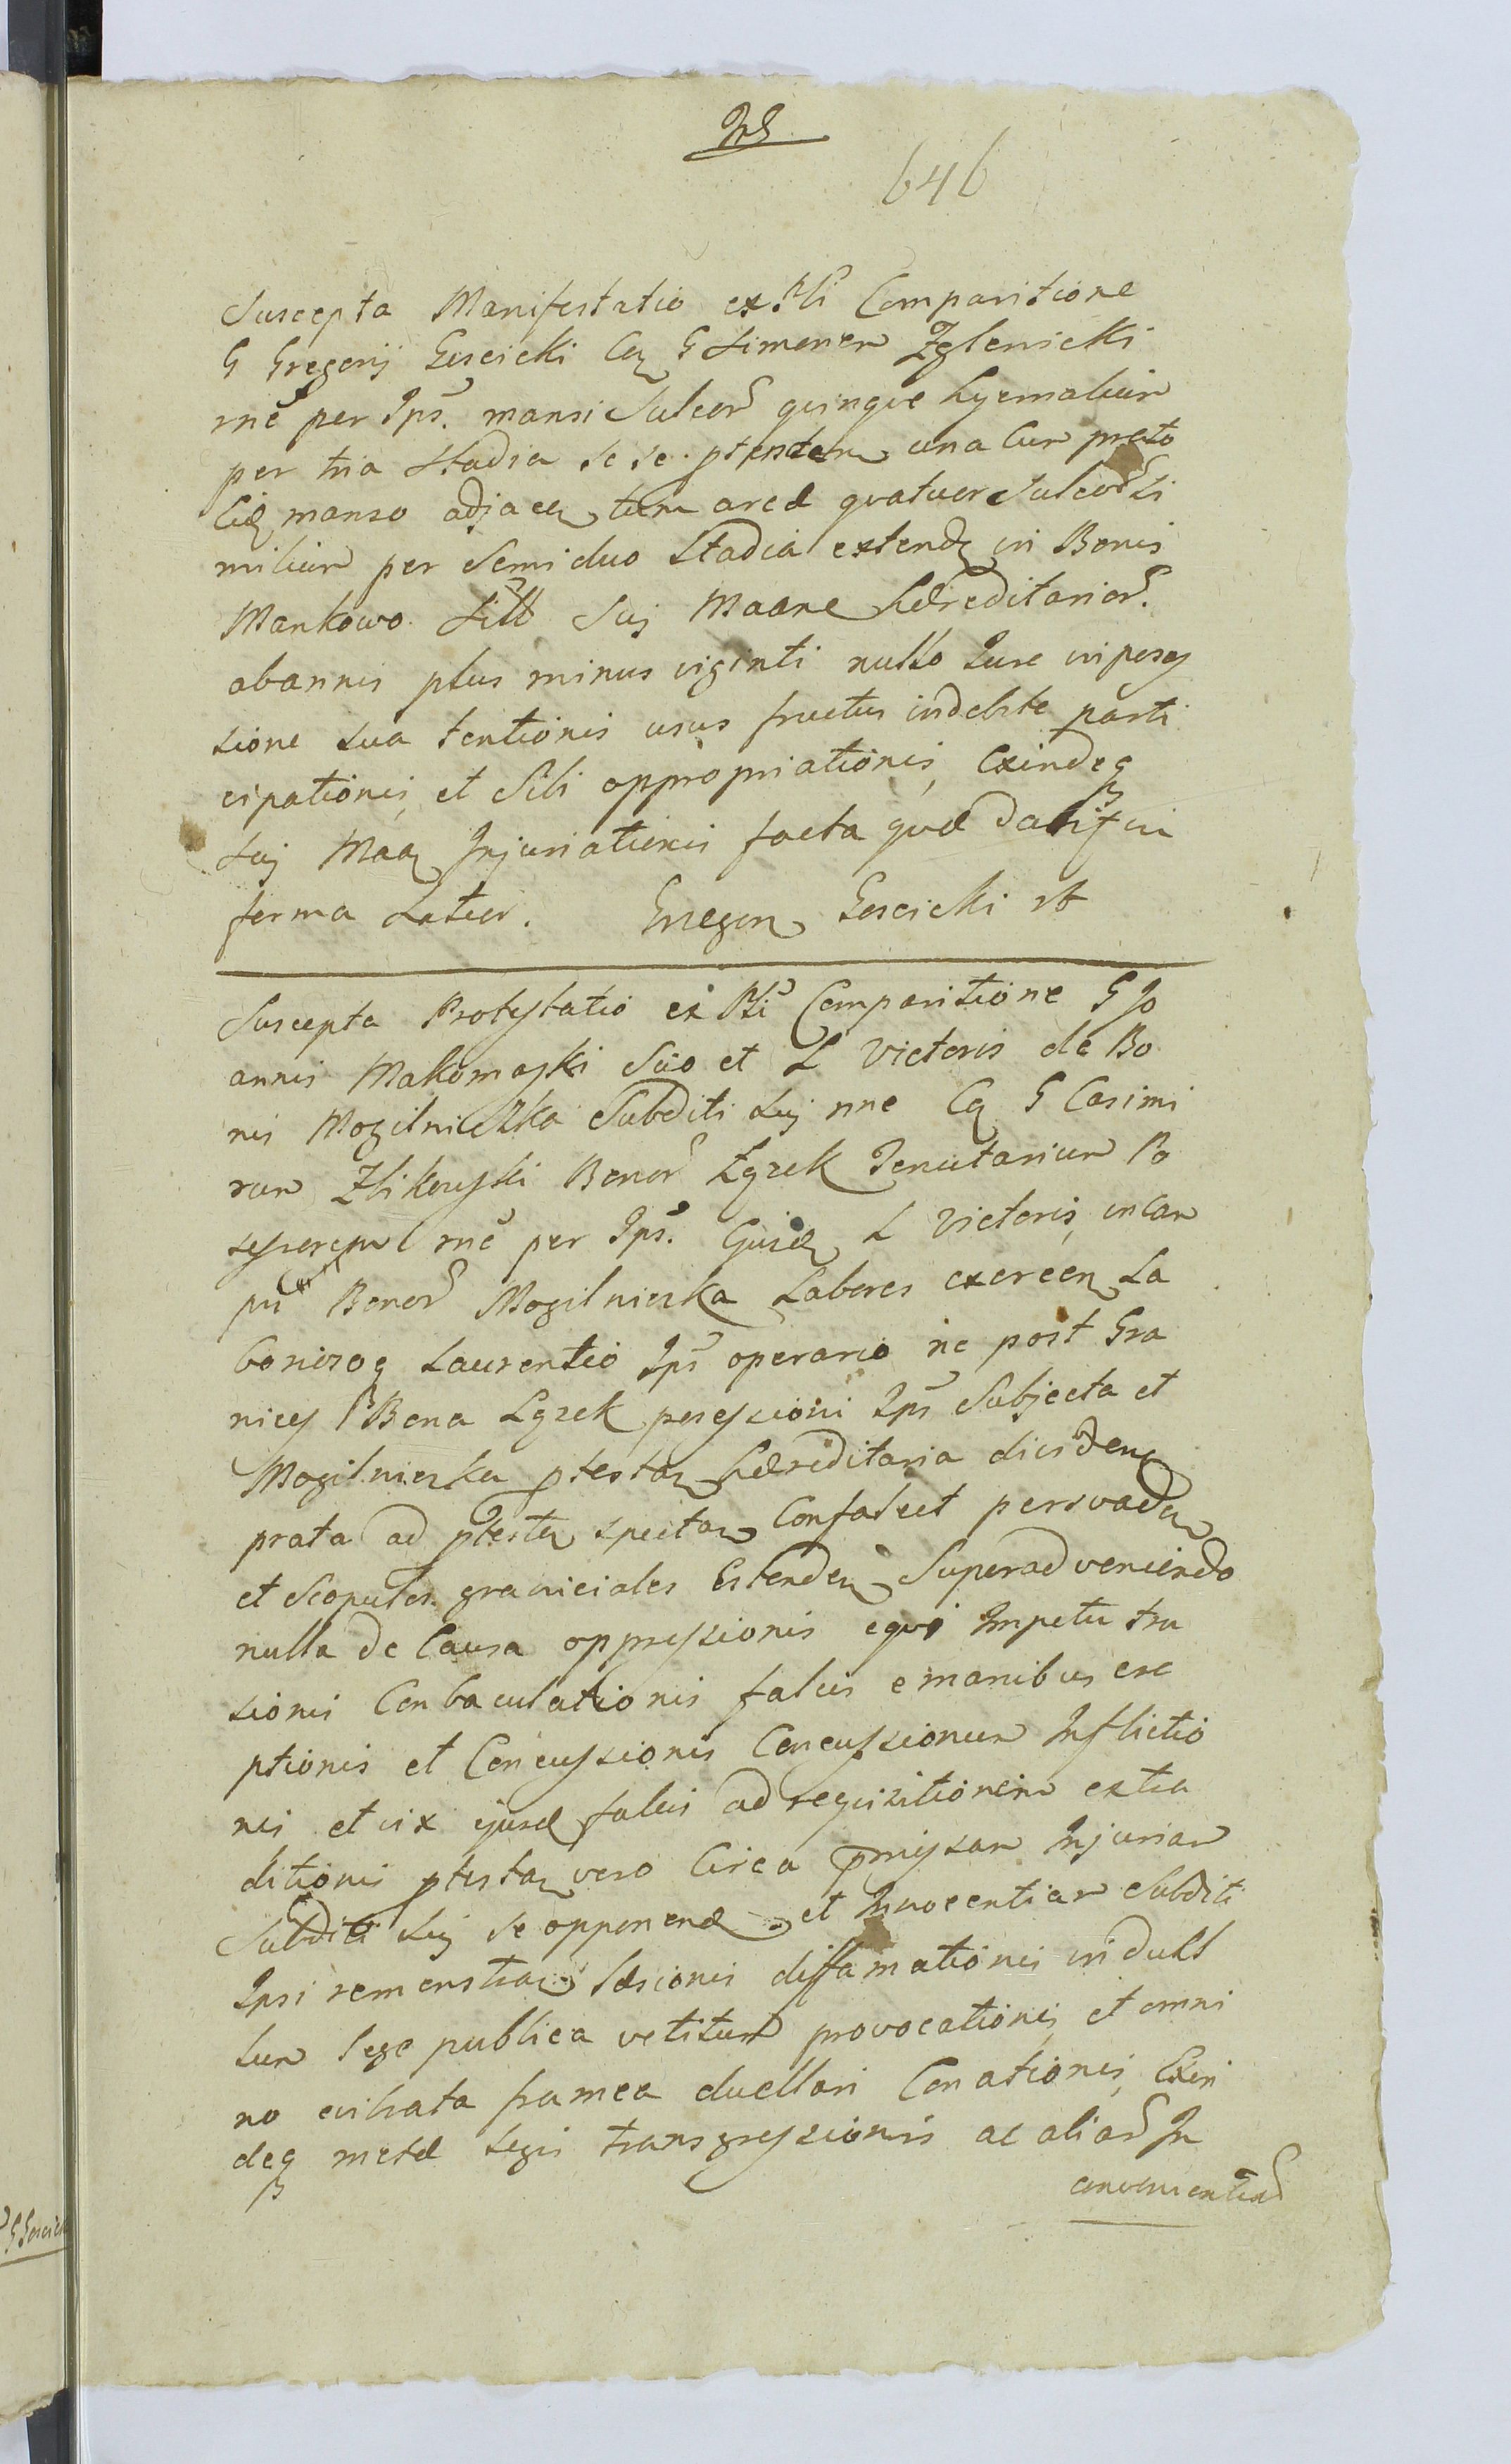 646
Suscepta Manifestatio ex Psli Comparitione
G Gregorij Goscicki Cq G Simonem Zglenicki
rne per Ips. mansi Sulcor quinque hyemalium
per tria Stadia se se ptenden una Cum prato
Eid manso adjacen tum areæ quatuor Sulcor Si
milium per Semi duo Stadia extend in Bonis
Mankowo Sui Maane Hæreditarior
ab annis plus minus viginti nullo Jure in posses
sione sua tentionis usus fructus indebite parti
cipationis et Sibi appropriationis, Exindeq
Sui Injuriationis facta quæ dabitur in
forma Latior. Gregorz Goscicki
Suscepta Protestatio ex Psli Comparitione G Jo
annis Makomaski Suo et L Victoris de Bo
nis Mogilniczka Subditi Sui nne Cq G Casimi
rum Zbikowski Bonor Łązek Tenutarium Po
ssessorem rne per Ips. Ejusd L Victoris, in Cam
pis Bonor Mogilniczka Labores exercen La
borisoq Laurentio Ips operario ne post Gra
nices Bona Łązek possessioni Ips Subjecta et
Mogilniczka ptestan hæreditaria dividen
prata ad ptestan spectan Confalcet persvaden
et Scopulos graniciales Ostenden Superadveniendo
nulla de Causa oppressionis equi Impetu tru
sionis Conbaculationis falcis e manibus ere
ptionis et Concussionis Concussionum Inflictio
nis et vix ejusd falcis ad requisitionem extra
ditionis ptestan vero Circa pmissam Injuriam
Subditi Sui se opponend et Innocentiam Subditi
Ipsi remonstran læsionis diffamationis in duel
lum lege publica vetitum provocationis et omni
no evibrata framea duellari Conationis, Exin
deq metæ legis transgressionis ac aliar In
convenientiar